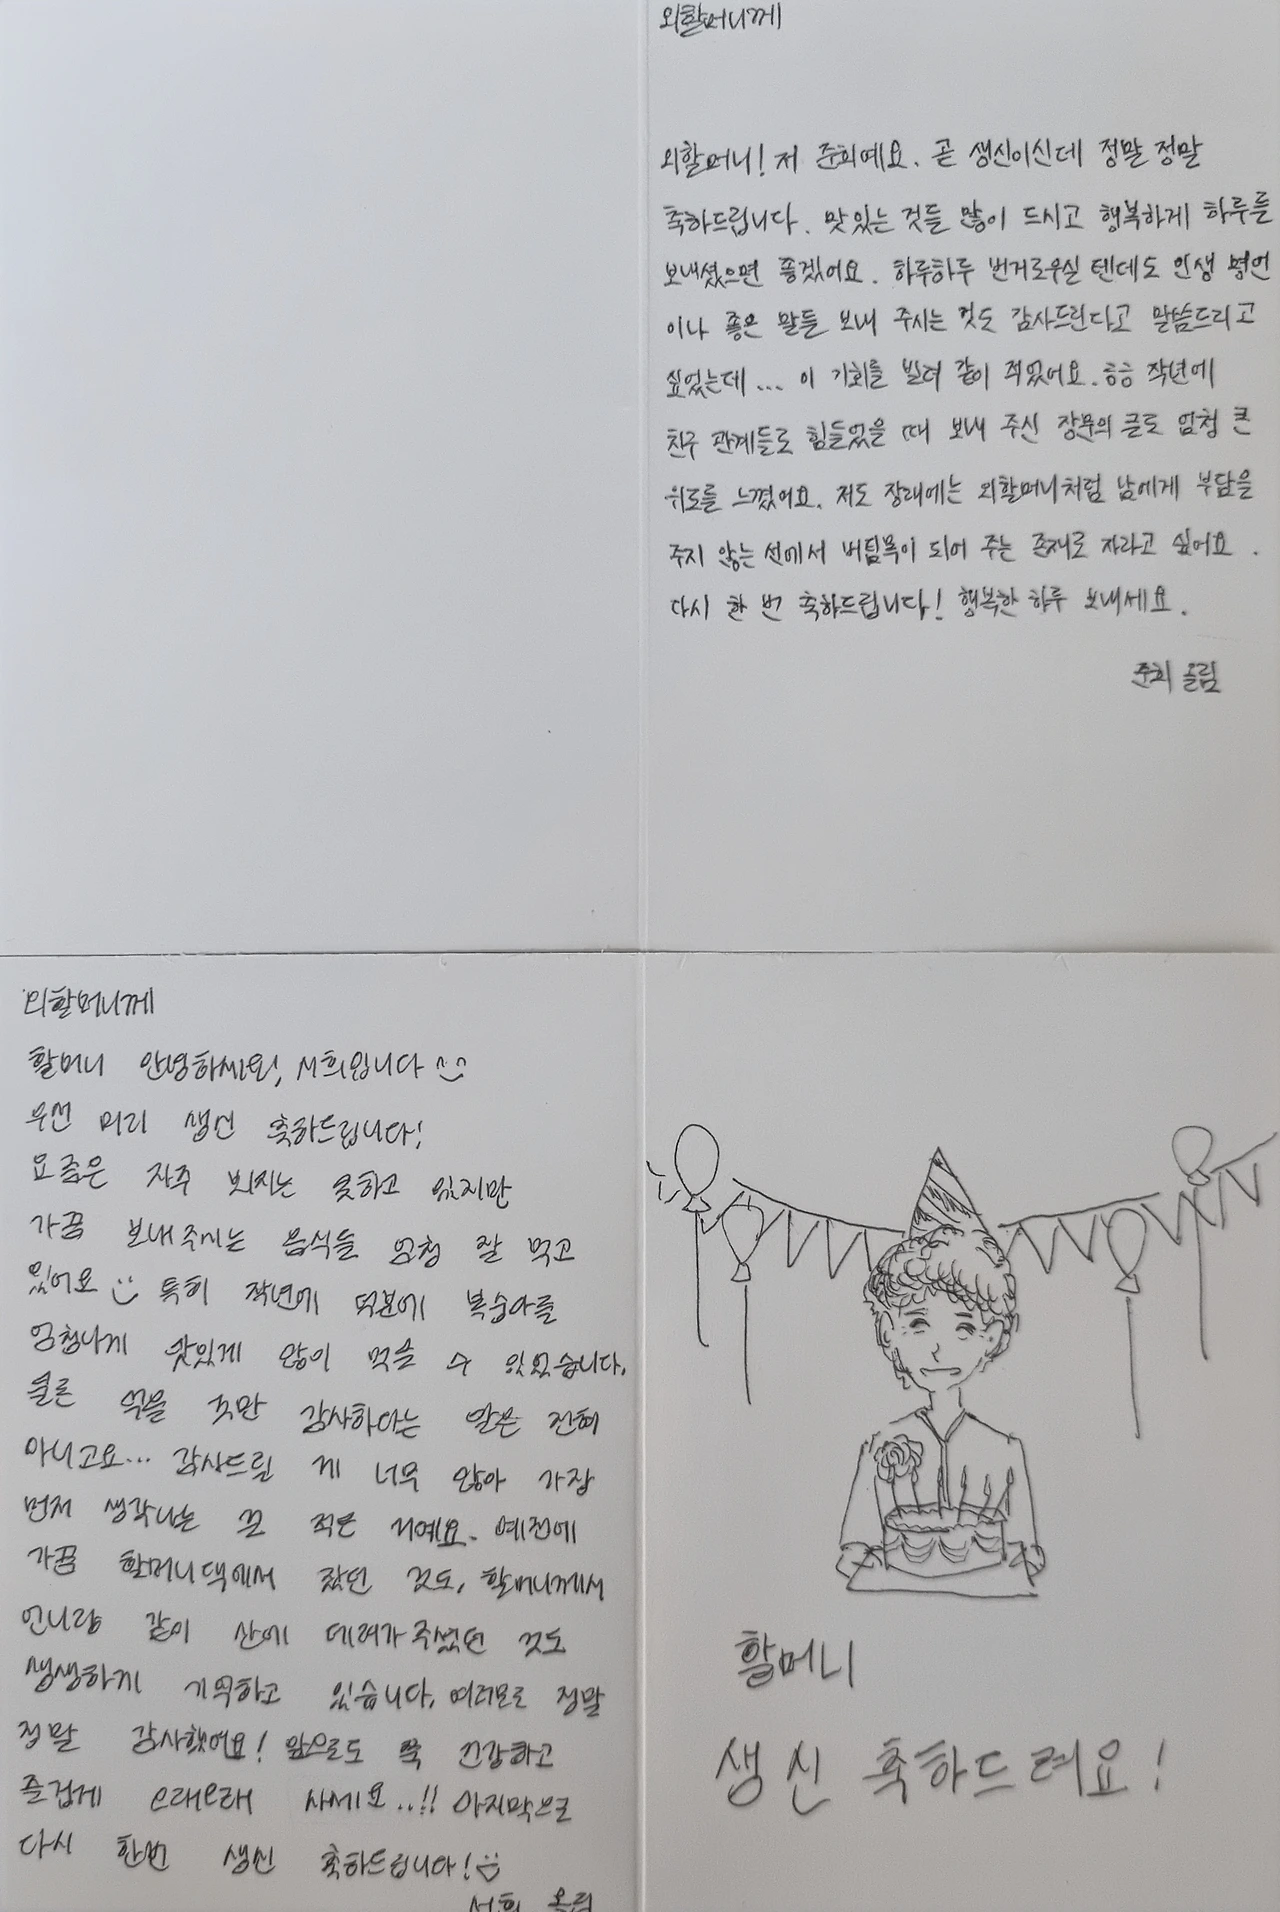 외할머니께
외할머니! 저 준희예요. 곧 생신이신데 정말 정말
축하드립니다. 맛있는 것들 많이 드시고 행복하게 하루를
보내셨으면 좋겠어요. 하루하루 번거로우실 텐데도 인생 명언
이나 좋은 말들 보내 주시는 것도 감사드린다고 말씀드리고
싶었는데... 이 기회를 빌려 같이 적었어요. ㅎㅎ 작년에
친구 관계들로 힘들었을 때 보내 주신 장문의 글로 엄청 큰
위로를 느꼈어요. 저도 장래에는 외할머니처럼 남에게 부담을
주지 않는 선에서 버팀목이 되어 주는 존재로 자라고 싶어요.
다시 한 번 축하드립니다! 행복한 하루 보내세요.
준희 올림
외할머니께
할머니 안녕하세요, 서희입니다 ^^
우선 미리 생신 축하드립니다!
요즘은 자주 뵈지는 못하고 있지만
가끔 보내주시는 음식들 엄청 잘 먹고
있어요 :) 특히 작년에 덕분에 복숭아를
엄청나게 맛있게 많이 먹을 수 있었습니다.
물론 먹을 것만 감사하다는 말은 전혀
아니고요... 감사드릴 게 너무 많아 가장
먼저 생각나는 걸 적은 거예요. 예전에
가끔 할머니댁에서 잤던 것도, 할머니께서
언니랑 같이 산에 데려가주셨던 것도
생생하게 기억하고 있습니다. 여러모로 정말
정말 감사했어요! 앞으로도 쭉 건강하고
즐겁게 오래오래 사세요..!! 마지막으로
다시 한번 생신 축하드립니다! :)
서희 올림
할머니
생신 축하드려요!